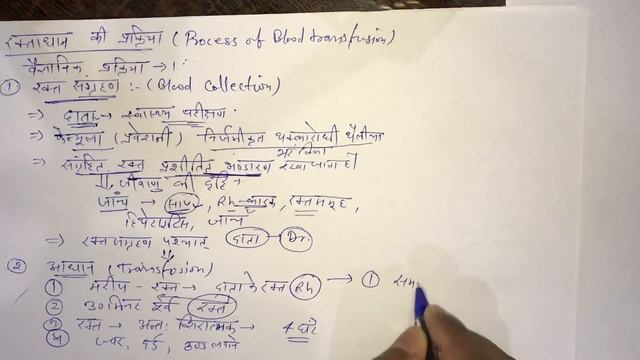 रक्ताधान की प्रक्रिया (Process of Blood transfusion)
वैज्ञानिक प्रक्रिया →
① रक्त संग्रहण :- (Blood Collection)
⇒ दाता → स्वास्थ्य परीक्षण
⇒ केन्युला (प्रवेशनी) निर्जमीकृत थक्कारोधी थैली
भर लिया
⇒ संग्रहित रक्त प्रशीतित भण्डारण रखा जाता है
जीवाणु की वृद्धि
जाँच → Rh-कारक, रक्त समूह,
हिपेटाइटिस, जाँच
⇒ रक्त संग्रहण पश्चात दाता Dr.
② आधान (transfusion)
① मरीज - रक्त → दाता के रक्त Rh → ① सम
② 30 मिनट पूर्व रक्त
③ रक्त → अन्तः शिरात्मक → 4 घंटे
④ ज्वर, दर्द,